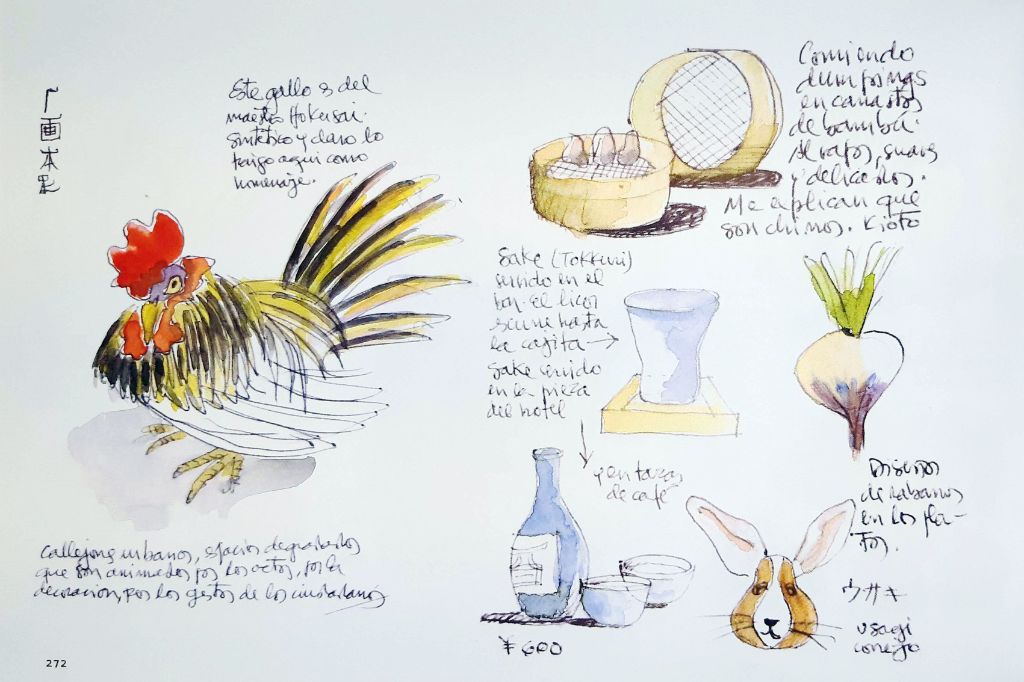 画本彩
Este gallo es del
maestro Hokusai.
sintético y claro lo
tengo aquí como
homenaje.
Comiendo
dumpings
en canastos
de bambú.
Al vapor, suaves
y delicados.
Me explican que
son chinos. Kioto
Sake (Tokkuri)
servido en el
bar. el licor
scurre hasta
la cajita →
Sake servido
en la pieza
del hotel
y en tazas
de café
¥ 600
Diseños
de rabanos
en los pla-
tos.
ウサキ
usagi
conejo
Callejones urbanos, espacios degradados
que son animados por los actos, por la
decoracion, por los gestos de los ciudadanos
272